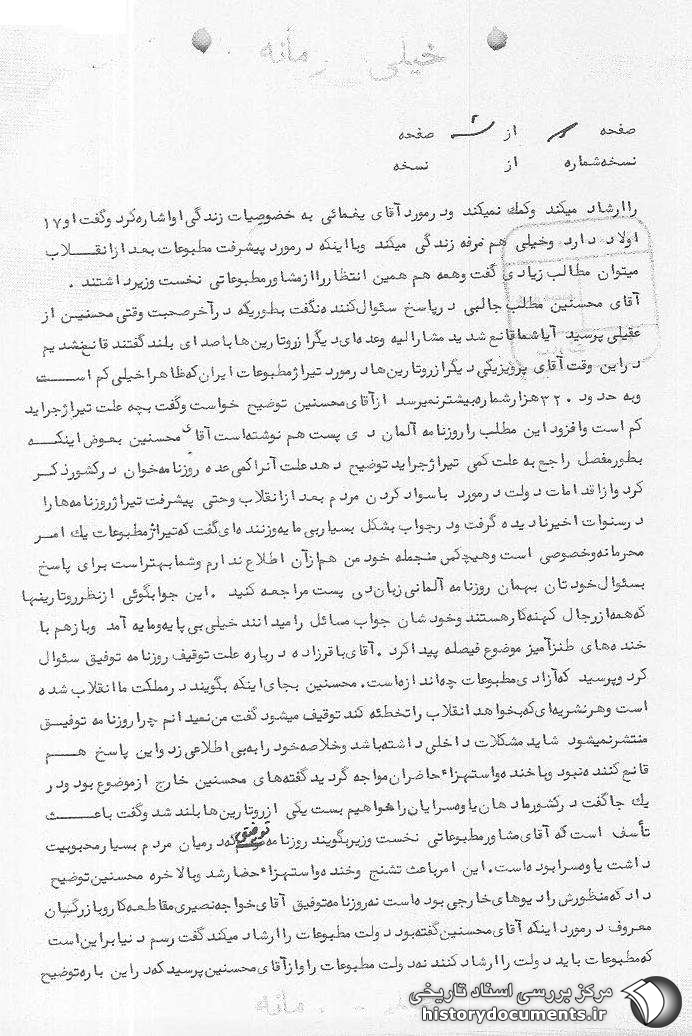 خیلی محرمانه
صفحه از صفحه
نسخه شماره از نسخه
را ارشاد میکند وکمک نمیکند ودرمورد آقای یغمائی به خصوصیات زندگی او اشاره کرد وگفت او ۱۷
اولاد دارد وخیلی هم مرفه زندگی میکند وبا اینکه درمورد پیشرفت مطبوعات بعد از انقـــلاب
میتوان مطالب زیادی گفت وهمه هم همین انتظار را از مشاور مطبوعاتی نخست وزیر داشتند .
آقای محسنین مطلب جالبی درپاسخ سئوال کننده نگفت بطوریکه درآخر صحبت وقتی محسنین از
عقیلی پرسید آیا شما قانع شدید مشارالیه وعده ای دیگر از روتارین ها با صدای بلند گفتند قانع نشدیم
دراین وقت آقای پرویزیکی دیگر از روتارین ها درمورد تیراژ مطبوعات ایران که ظاهرا خیلی کم اســـت
وبه حدود ۳۲۰ هزار شماره بیشتر نمیرسد از آقای محسنین توضیح خواست وگفت بچه علت تیراژ جراید
کم است وافزود این مطلب را روزنامه آلمان دی پست هم نوشته است آقای محسنین بعوض اینکـــه
بطور مفصل راجع به علت کمی تیراژ جراید توضیح دهد علت آنرا کمی عده روزنامه خوان درکشور ذکـر
کرد واز اقدامات دولت درمورد با سواد کردن مردم بعد از انقلاب وحتی پیشرفت تیراژ روزنامه ها را
درسنوات اخیر نادیده گرفت ودرجواب بشکل بسیار بی مایه وزننده ای گفت که تیراژ مطبوعات یک امـر
محرمانه وخصوصی است وهیچکس منجمله خود من هم از آن اطلاع ندارم وشما بهتر است برای پاسخ
بسئوال خودتان بهمان روزنامه آلمانی زبان دی پست مراجعه کنید . این جوابگوئی از نظر روتارینها
که همه از رجال کهنه کار هستند وخودشان جواب مسائل را میدانند خیلی بی پایه ومایه آمد وبازهم با
خنده های طنزآمیز موضوع فیصله پیدا کرد . آقای باقرزاده درباره علت توقیف روزنامه توفیق سئوال
کرد وپرسید که آزادی مطبوعات چه اندازه است . محسنین بجای اینکه بگویند درمملکت ما انقلاب شده
است وهر نشریه ای که بخواهد انقلاب را تخطئه کند توقیف میشود گفت من نمیدانم چرا روزنامه توفیـق
منتشر نمیشود شاید مشکلات داخلی داشته باشد وخلاصه خود را به بی اطلاعی زد واین پاسخ هـــم
قانع کننده نبود وبا خنده واستهزاء حاضران مواجه گردید گفته های محسنین خارج از موضوع بود ودر
یک جا گفت درکشور ما دهان یاوه سرایان را خواهیم بست یکی از روتارین ها بلند شد وگفت باعـــث
تأسف است که آقای مشاور مطبوعاتی نخست وزیر بگویند روزنامه توفیق که درمیان مردم بسیار محبوبیت
داشت یاوه سرا بوده است . این امر باعث تشنج وخنده واستهزاء حضار شد وبالاخره محسنین توضیح
داد که منظورش رادیوهای خارجی بوده است نه روزنامه توفیق آقای خواجه نصیری مقاطعه کار وبازرگان
معروف درمورد اینکه آقای محسنین گفته بود دولت مطبوعات را ارشاد میکند گفت رسم دنیا براین است
که مطبوعات باید دولت را ارشاد کنند نه دولت مطبوعات را واز آقای محسنین پرسید که دراین باره توضیح
مرکز بررسی اسناد تاریخی
historydocuments.ir